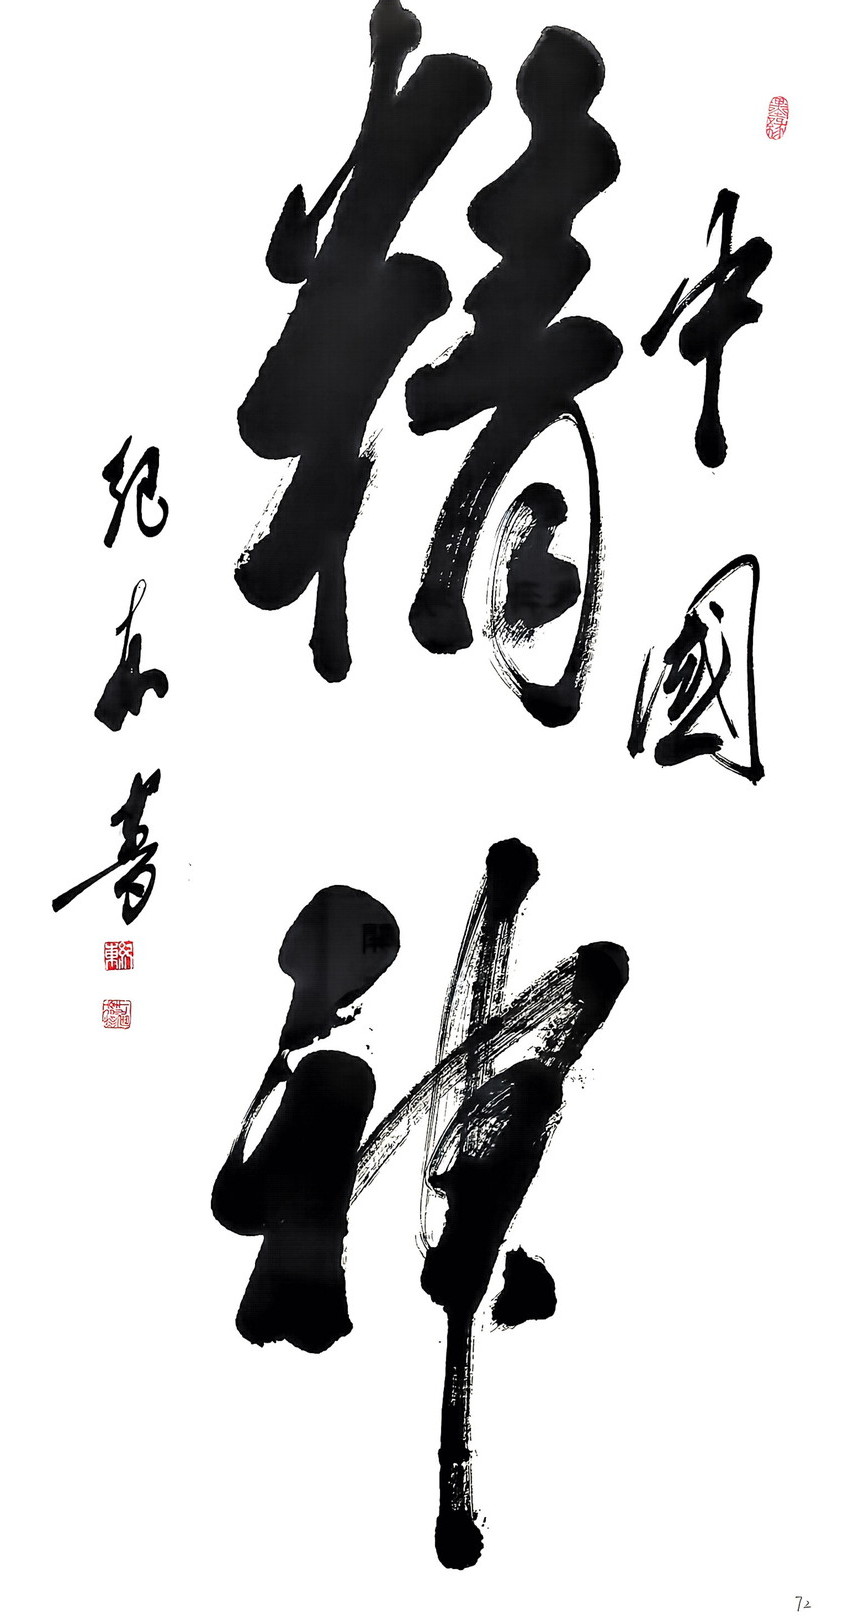 中國
精神
纪东書
72